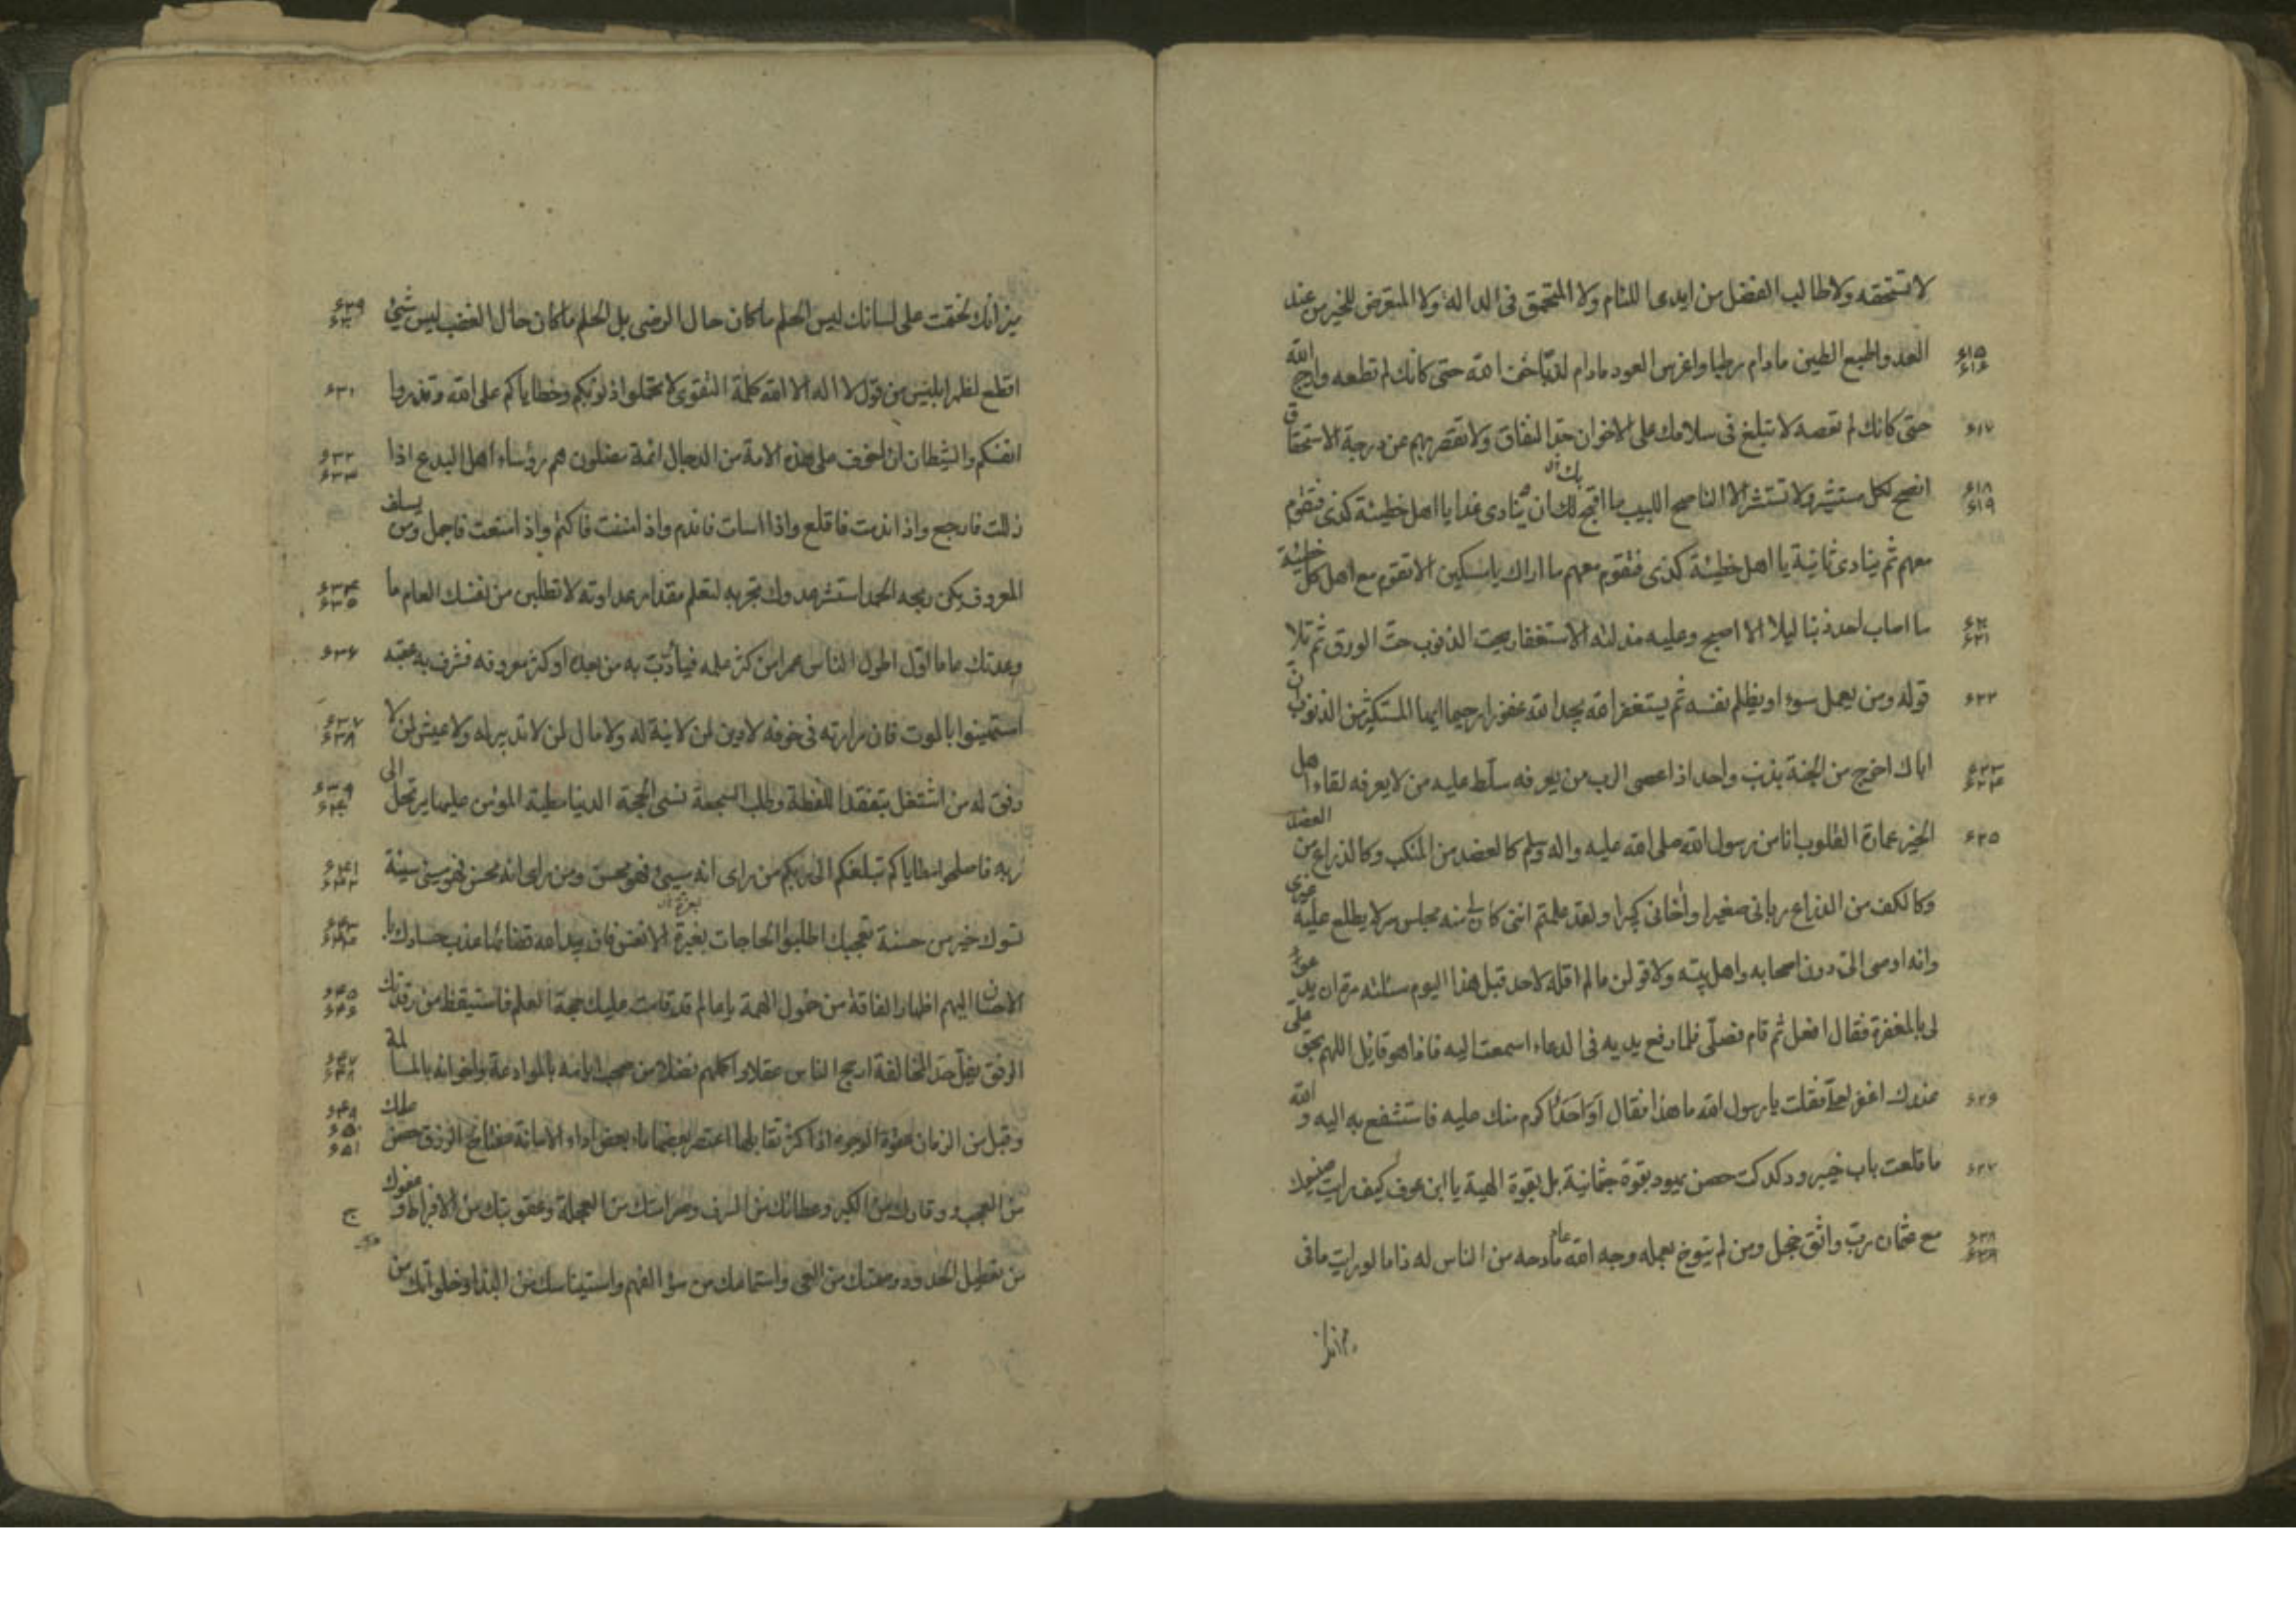 لا تستحقه ولا طالب الفضل من ايدى اللئام ولا المتعمق فى الدالة ولا المتعرض للخير من عند
٤١٥ ٤١٦ العدو اطبع الطين مادام رطبا واغرس العود مادام لدنا خف الله حتى كانك لم تطعه وارج الله
٤١٧ حتى كانك لم تعصه لا تبلغ فى سلامك على الاخوان حد النفاق ولا تقصر بهم عن درجة الاستحقاق
٤١٨ ٤١٩ انصح لكل مستشير ولا تستشر الا الناصح اللبيب ما اقبح بك ان ينادى غدا يا اهل خطيئة كذى فتقوم
معهم ثم ينادى ثانية يا اهل خطيئة كذى فتقوم معهم ما اراك يا مسكين الا تقوم مع اهل كل خطيئة
٤٢٠ ٤٢١ ما اصاب احد ذنبا ليلا الا اصبح وعليه مذلته الاستغفار يحت الذنوب حت الورق ثم تلا
٤٢٢ قوله ومن يعمل سوء او يظلم نفسه ثم يستغفر الله يجد الله غفورا رحيما ايها المستكثر من الذنوب ان
٤٢٣ ٤٢٤ اباك اخرج من الجنة بذنب واحد اذا عصى الرب من يعرفه سلط عليه من لا يعرفه لقاء اهل
٤٢٥ الخير عمارة القلوب انا من رسول الله صلى الله عليه واله وسلم كالعضد من المنكب وكالذراع من العضد
وكالكف من الذراع ربانى صغيرا واخانى كبيرا ولقد علمتم انى كان لى منه مجلس سر لا يطلع عليه غيرى
وانه اوصى الى دون اصحابه واهل بيته ولاقولن ما لم اقله لاحد قبل هذا اليوم سئلته مرة ان يدعو
لى بالمغفرة فقال افعل ثم قام فصلى فلما رفع يديه فى الدعاء استمعت اليه فاذا هو قائل اللهم بحق على
٤٢٦ عندك اغفر لعلى فقلت يا رسول الله ما هذا فقال اواحد اكرم منك عليه فاستشفع به اليه والله
٤٢٧ ما قلعت باب خيبر ودكدكت حصن يهود بقوة جثمانية بل بقوة الهية يا ابن عوف كيف رايت صنيعك
٤٢٨ ٤٢٩ مع عثمان رب واثق خجل ومن لم يتوخ بعمله وجه الله عاد مادحه من الناس له ذاما لو رايت ما فى
ميزانك لختمت على لسانك ليس الحلم ما كان حال الرضى بل الحلم ما كان حال الغضب ليس شئ ٤٣٠
اقطع لظهر ابليس من قول لا اله الا الله كلمة التقوى لا تحملوا ذنوبكم وخطاياكم على الله وتذروا ٤٣١
انفسكم والشيطان ان اخوف على هذه الامة من الدجال ائمة مضلون هم رؤساء اهل البدع اذا ٤٣٢ ٤٣٣
زللت فارجع واذا اذنبت فاقلع واذا اسات فاندم واذا مننت فاكتم واذا منعت فاجمل ومن يسلف
المعروف يكن ربحه الحمد استشر عدوك تجربه لتعلم مقدار عداوته لا تطلبن من نفسك العام ما ٤٣٤ ٤٣٥
وعدتك عاما اول اطول الناس عمرا من كثر علمه فيتأدب به من بعده او كثر معروفه فشرف به عقبه ٤٣٦
استهينوا بالموت فان مرارته فى خوفه لا دين لمن لا نية له ولا مال لمن لا تدبير له ولا عيش لمن لا ٤٣٧ ٤٣٨
رفق له من اشتغل بتفقد اللفظة وطلب السجعة نسى الحجة الدنيا مطية المؤمن عليها يرتحل الى ٤٣٩ ٤٤٠
ربه فاصلحوا مطاياكم تبلغكم الى ربكم من راى انه مسيئ فهو محسن ومن راى انه محسن فهو مسئ سيئة ٤٤١ ٤٤٢
تسوءك خير من حسنة تعجبك اطلبوا الحاجات بعزة الانفس فان بيد الله قضائها عذب حسادك با ٤٤٣ ٤٤٤
لاحسان اليهم اظهار الفاقة من خمول الهمة يا عالم قد قامت عليك حجة العلم فاستيقظ من رقدتك ٤٤٥ ٤٤٦
الرفق يفل حد المخالفة ارجح الناس عقلا واكملهم فضلا من صحب ايامه بالموادعة واخوانه بالمسالمة ٤٤٧ ٤٤٨
وقبل من الزمان عفوه الوجوه اذا كثر تقابلها اعتصر بعضها ماء بعض اداء الامانة مفتاح الرزق حصن علمك ٤٤٩ ٤٥٠ ٤٥١
من العجب ووقارك من الكبر وعطائك من السرف وصرامتك من العجلة وعقوبتك من الافراط وعفوك
من تعطيل الحدود وصمتك من العى واستماعك من سوء الفهم واستيناسك من البذاء وخلواتك من